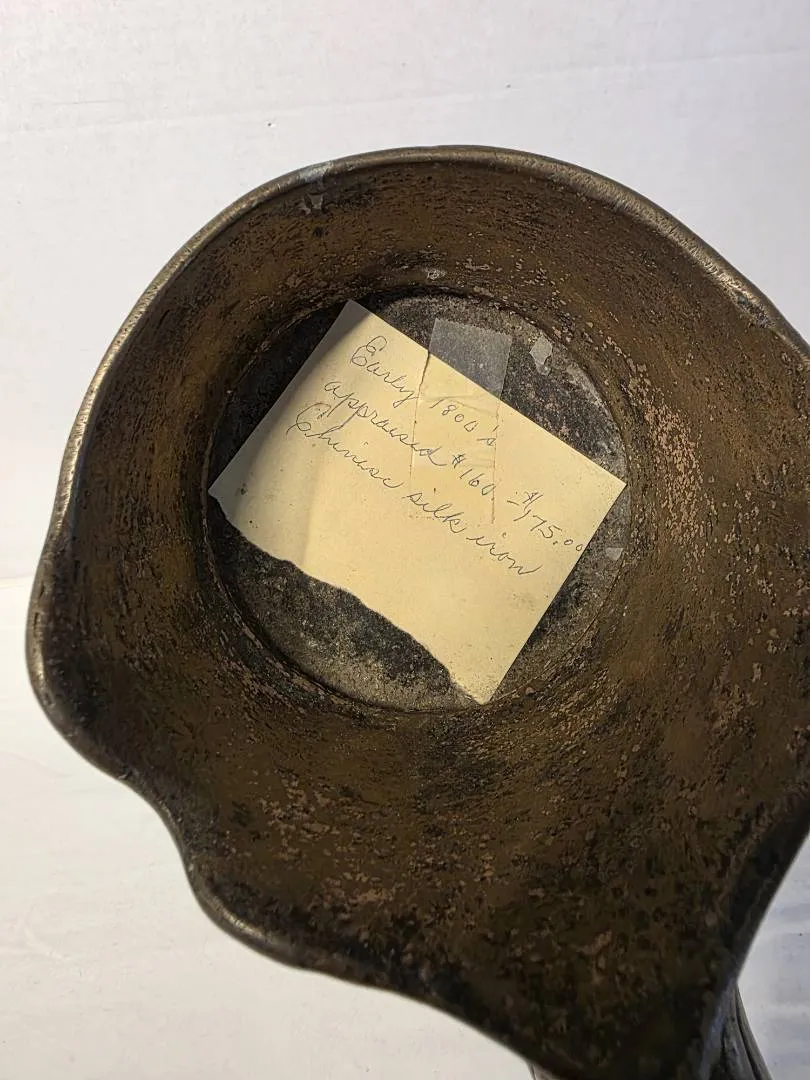 Early 1800's
appraised $160.-$175.00
Chinese silk iron